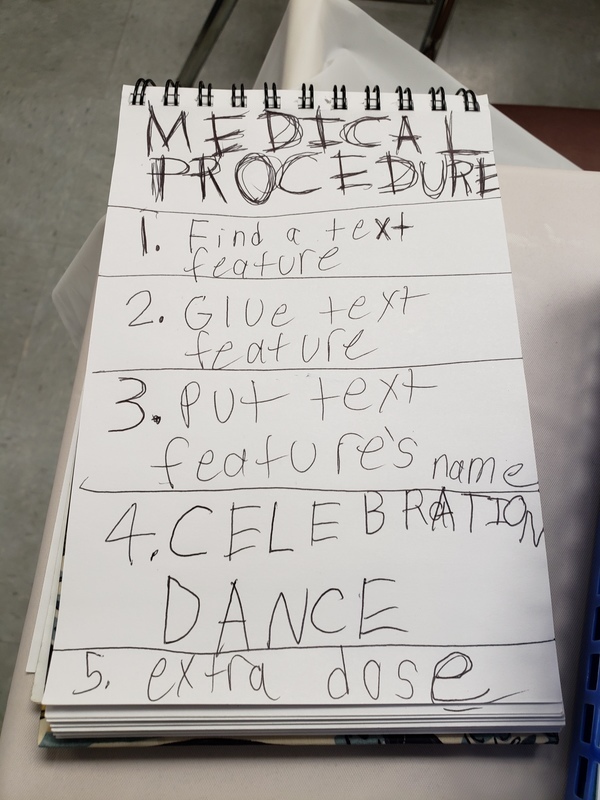 MEDICAL
PROCEDURE
1. Find a text
feature
2. Glue text
feature
3. Put text
feature's name
4. CELEBRATION
DANCE
5. extra dose